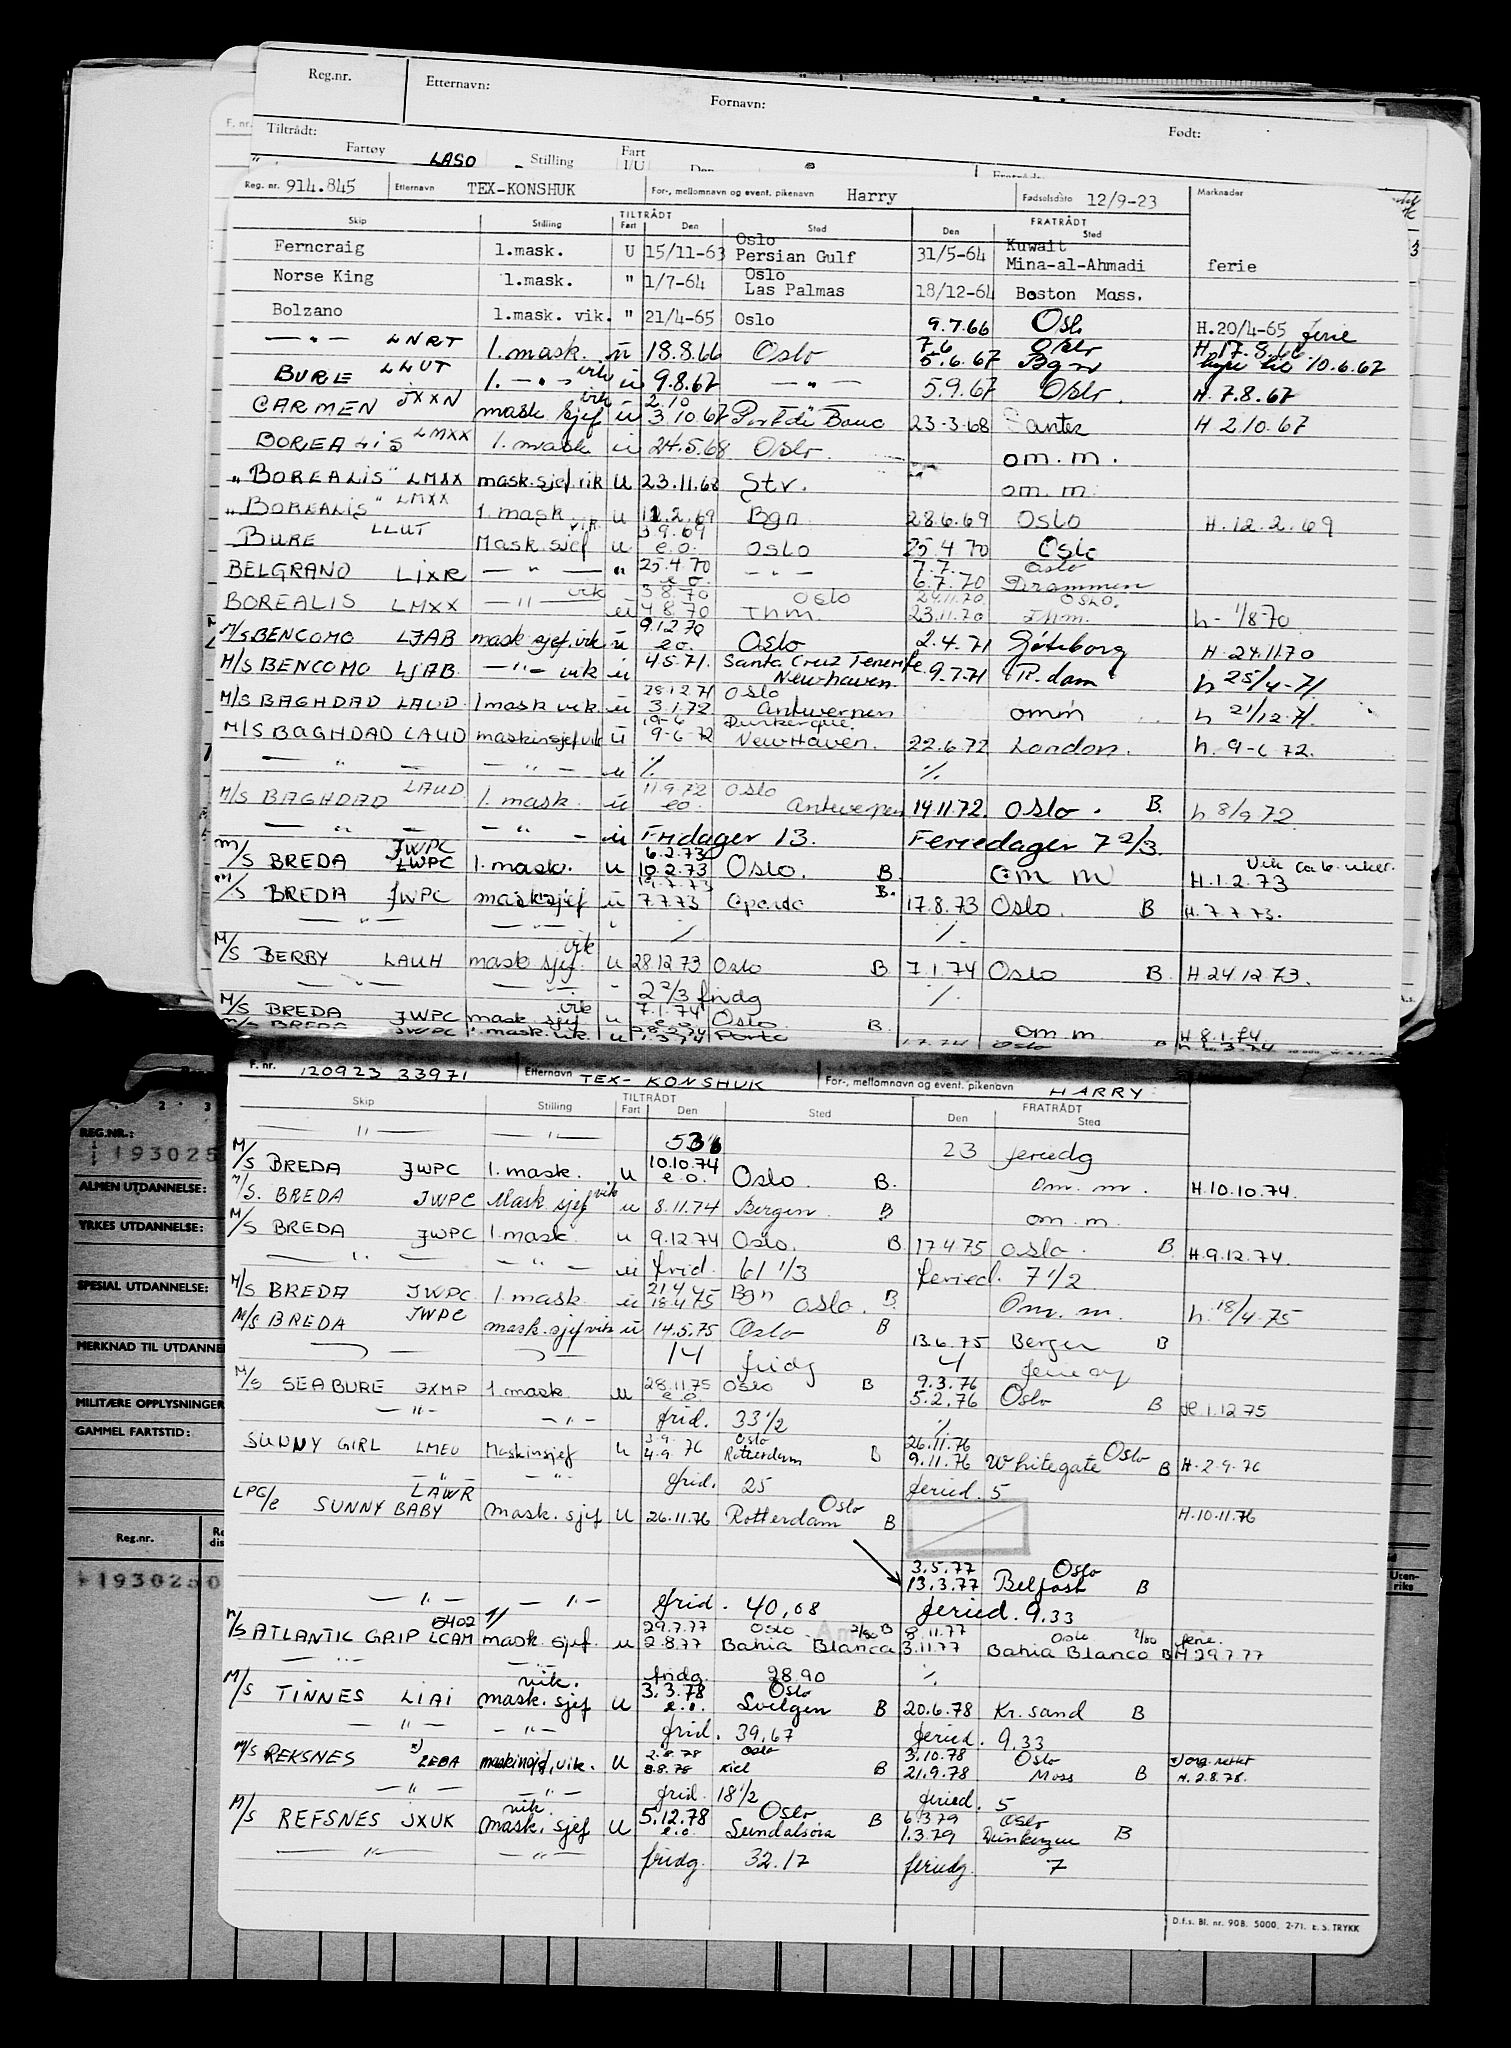 Reg.nr. Etternavn: Fornavn: Født:
Tiltrådt:
Fartøy LASO Stilling Fart I/U
F. nr.
Reg. nr. 914.845 Etternavn TEX-KONSHUK For-, mellomnavn og event. pikenavn Harry Fødselsdato 12/9-23 Merknader
TILTRÅDT FRATRÅDT
Skip Stilling Fart Den Sted Den Sted
Ferncraig 1.mask. U 15/11-63 Oslo Persian Gulf 31/5-64 Kuwait Mina-al-Ahmadi ferie
Norse King 1.mask. " 1/7-64 Oslo Las Palmas 18/12-64 Boston Mass.
Bolzano 1.mask. vik. " 21/4-65 Oslo 9.7.66 Oslo H.20/4-65 ferie
— " — LNRT 1. mask. u 18.8.66 Oslo 7.6 5.6.67 Oslo Bgn H.17.8.66 10.6.67
BURE LLUT 1. — " — vik u 9.8.67 — " — 5.9.67 Oslo. H.7.8.67
CARMEN JXXN mask. sjef vik u 2.10 3.10.67 Port de Bouc 23.3.68 Santos H 2.10.67
BOREALIS LMXX 1. mask u 24.5.68 Oslo. om.m.
"BOREALIS" LMXX mask.sjef.vik u 23.11.68 Stv. om.m.
"BOREALIS" LMXX 1. mask u 12.2.69 Bgn 28.6.69 Oslo H.12.2.69
BURE LLUT Mask. sjef vik. u 3.9.69 e.o. Oslo 25.4.70 Oslo
BELGRANO LIXR — " — " 25.4.70 e.o. — " — 7.7. 6.7.70 Oslo Drammen
BOREALIS LMXX — " — vik u 3.8.70 4.8.70 Oslo Thm. 24.11.70 23.11.70 OSLO. Thm. h- 1/8 70
M/S BENCOMO LJAB mask.sjef.vik u 9.12.70 e.o. Oslo 2.4.71 Gøteborg H. 24.11.70
M/S BENCOMO LJAB — " — vik u 4.5.71. Santa Cruz Tenerife Newhaven 9.7.71 R.dam h 25/4-71
M/S BAGHDAD LAUD 1 mask vik. u 28.12.71 3.1.72 Oslo Antwerpen omm h 21/12.71.
M/S BAGHDAD LAUD maskinsjef vik u 19-6 9-6 72 Dunkerque. NewHaven. 22.6.72 London. h. 9-6 72.
— " — — " — u % %
M/S BAGHDAD LAUD 1. mask. u 11.9.72 eo. Oslo Antwerpen 14.11.72. Oslo. B. h 8/9 72.
— " — — " — u Fridager 13. Feriedager 7 2/3.
M/S BREDA JWPC JWPC 1. mask. u 6.2.73 10.2.73 Oslo. B om m Vik ca 6 uker. H.1.2.73
M/S BREDA JWPC masksjef u 7.7.73 Oporto B. 17.8.73 Oslo. B H.7.7.73.
— " — — " — " % %
M/S BERBY LAUH mask sjef. vik u 28.12.73 Oslo B. 7.1.74 Oslo B. H.24.12.73.
— " — — " — " 2 2/3 fridg %
M/S BREDA JWPC mask. sjef vik u 7.1.74 e.o. Oslo. B. om m H 8.1.74
M/S BREDA JWPC 1. mask. vik. u Porto Oslo
F. nr. 120923 33971 Etternavn TEX-KONSHUK For-, mellomnavn og event. pikenavn HARRY
TILTRÅDT FRATRÅDT
Skip Stilling Fart Den Sted Den Sted
— " — — " — 23 feriedg
M/S BREDA JWPC 1. mask. u 10.10.74 e.o. Oslo. B. om. m. H.10.10.74.
M/S. BREDA JWPC Mask sjef vik u 8.11.74 Bergen. B om. m.
M/S BREDA JWPC 1. mask. u 9.12.74 Oslo. B 17.4.75 Oslo. B. H.9.12.74.
— " — — " — u frid. 61 1/3 feried. 7 1/2
M/S BREDA JWPC. 1. mask u 21.4.75 18.4.75 Bgn Oslo. B. Om. m. h. 18/4.75
M/S BREDA JWPC mask.sjef vik u 14.5.75 Oslo B 13.6.75 Bergen B
— " — — " — 14 fridg 4 feriedg
M/S SEABURE JXMP 1. mask u 28.11.75 e.o. Oslo B 9.3.76 5.2.76 Oslo B H.1.12 75
— " — — " — frid. 33 1/2 %
SUNNY GIRL LMEU Maskinsjef u 3.9. 4.9. 76 Oslo Rotterdam B 26.11.76 9.11.76 Oslo Whitegate B H. 2.9.76
— " — — " — frid. 25 feried. 5
LPG/e SUNNY BABY LAWR mask. sjef u 26.11.76 Oslo Rotterdam B H.10.11.76
3.5.77 13.3.77 Oslo Belfast B
— " — — " — frid. 40,08 feried. 9.33
M/S ATLANTIC GRIP LCAM mask. sjef. u 29.7.77 2.8.77 Oslo Bahia Blanca B 8.11.77 3.11.77 Oslo Bahia Blanco B ferie. H 29.7.77
— " — — " — fridg. 28.90 %
M/S TINNES LIAI mask. sjef vik. u 3.3.78 e.o. Oslo Svelgen B 20.6.78 Kr.sand B
— " — — " — frid. 39,67 feried. 9.33
M/S REKSNES x) LEBA maskinsjef, vik. u 2.8.78 8.8.78 Oslo Kiel B 3.10.78 21.9.78 Oslo Moss B x) org. rettet H. 2.8.78.
— " — — " — frid. 18 1/2 feried. 5
M/S REFSNES JXUK mask. sjef vik. u 5.12.78 e.o. Oslo Sundalsøra B 6.3.79 1.3.79 Oslo Dunkerque B
— " — — " — fridg. 32.17 feriedg. 7
D.f.s. Bl. nr. 90B. 5000. 2-71. E.S. TRYKK
REG.NR.:
193025
ALMEN UTDANNELSE:
YRKES UTDANNELSE:
SPESIAL UTDANNELSE:
MERKNAD TIL UTDANNE
MILITÆRE OPPLYSNINGER
GAMMEL FARTSTID:
Reg.nr.
1930250
Uten-
riks